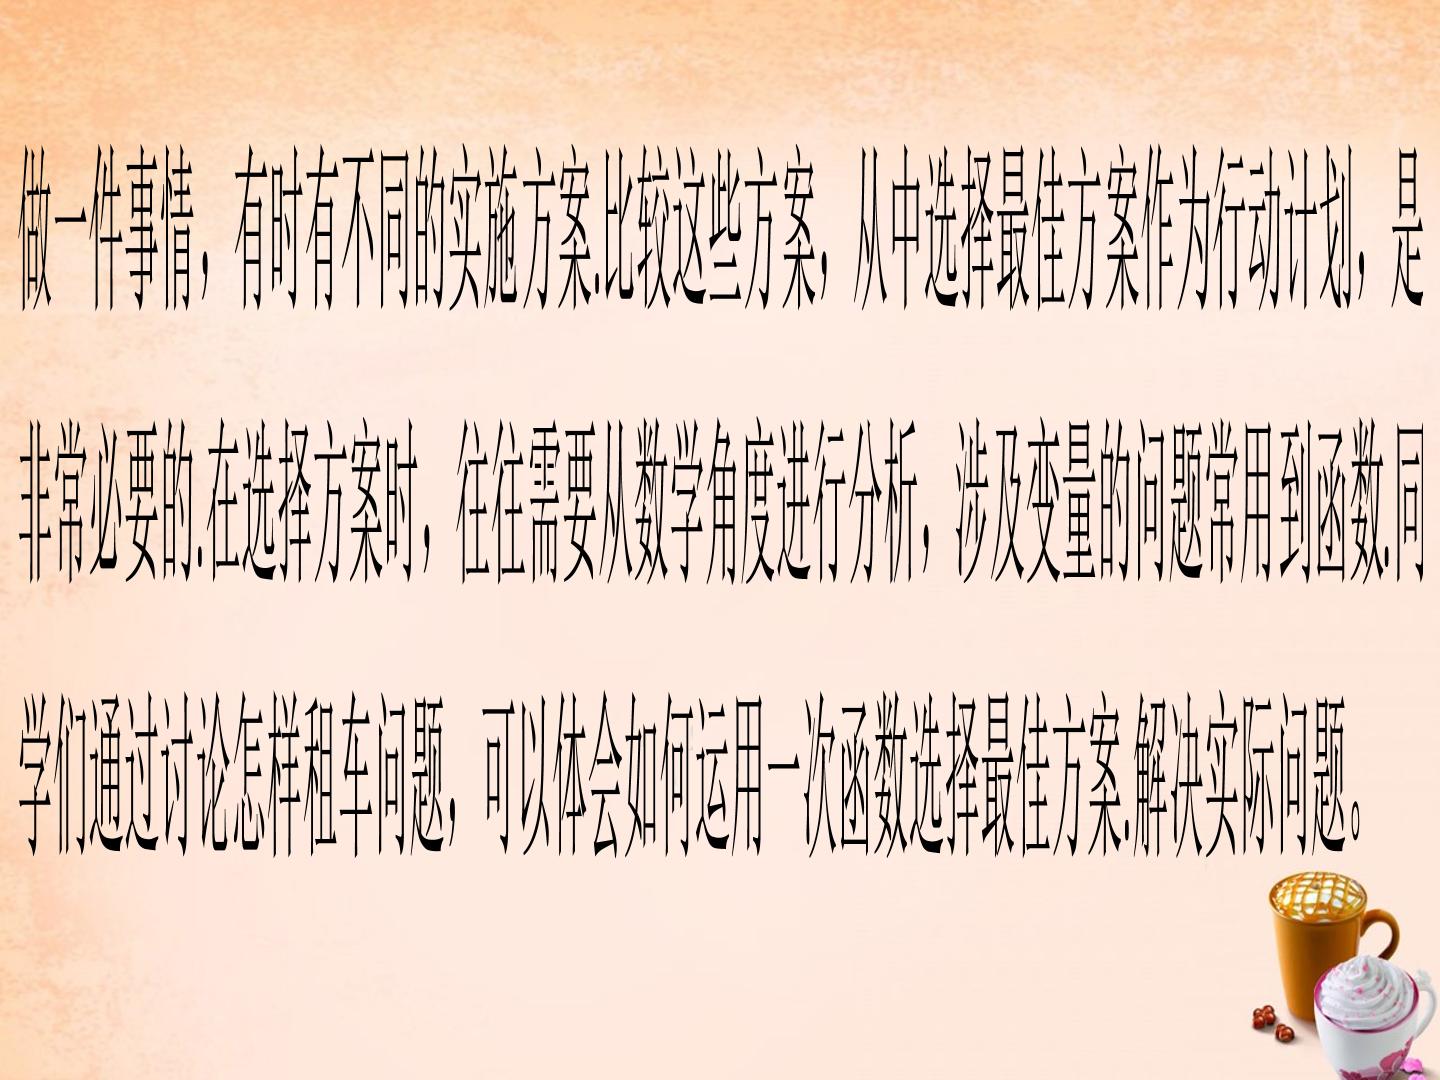 做一件事情，有时有不同的实施方案.比较这些方案，从中选择最佳方案作为行动计划，是
非常必要的.在选择方案时，往往需要从数学角度进行分析，涉及变量的问题常用到函数.同
学们通过讨论怎样租车问题，可以体会如何运用一次函数选择最佳方案.解决实际问题。